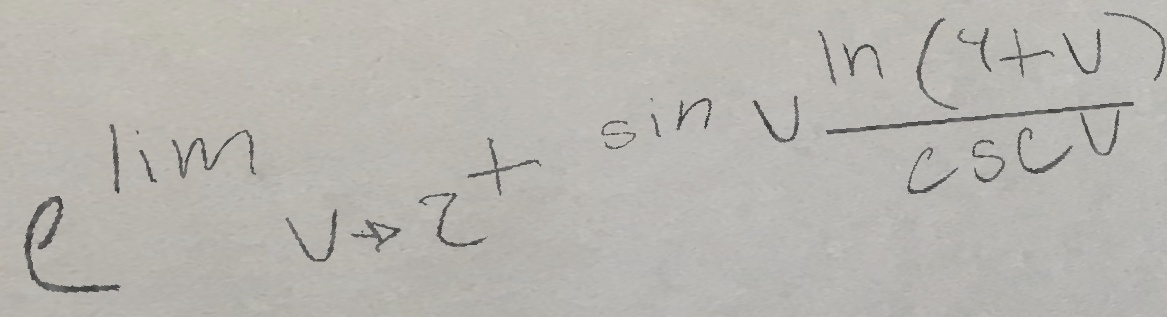 e^{\lim_{v \to 2^+} \sin v \frac{\ln(4+v)}{\csc v}}